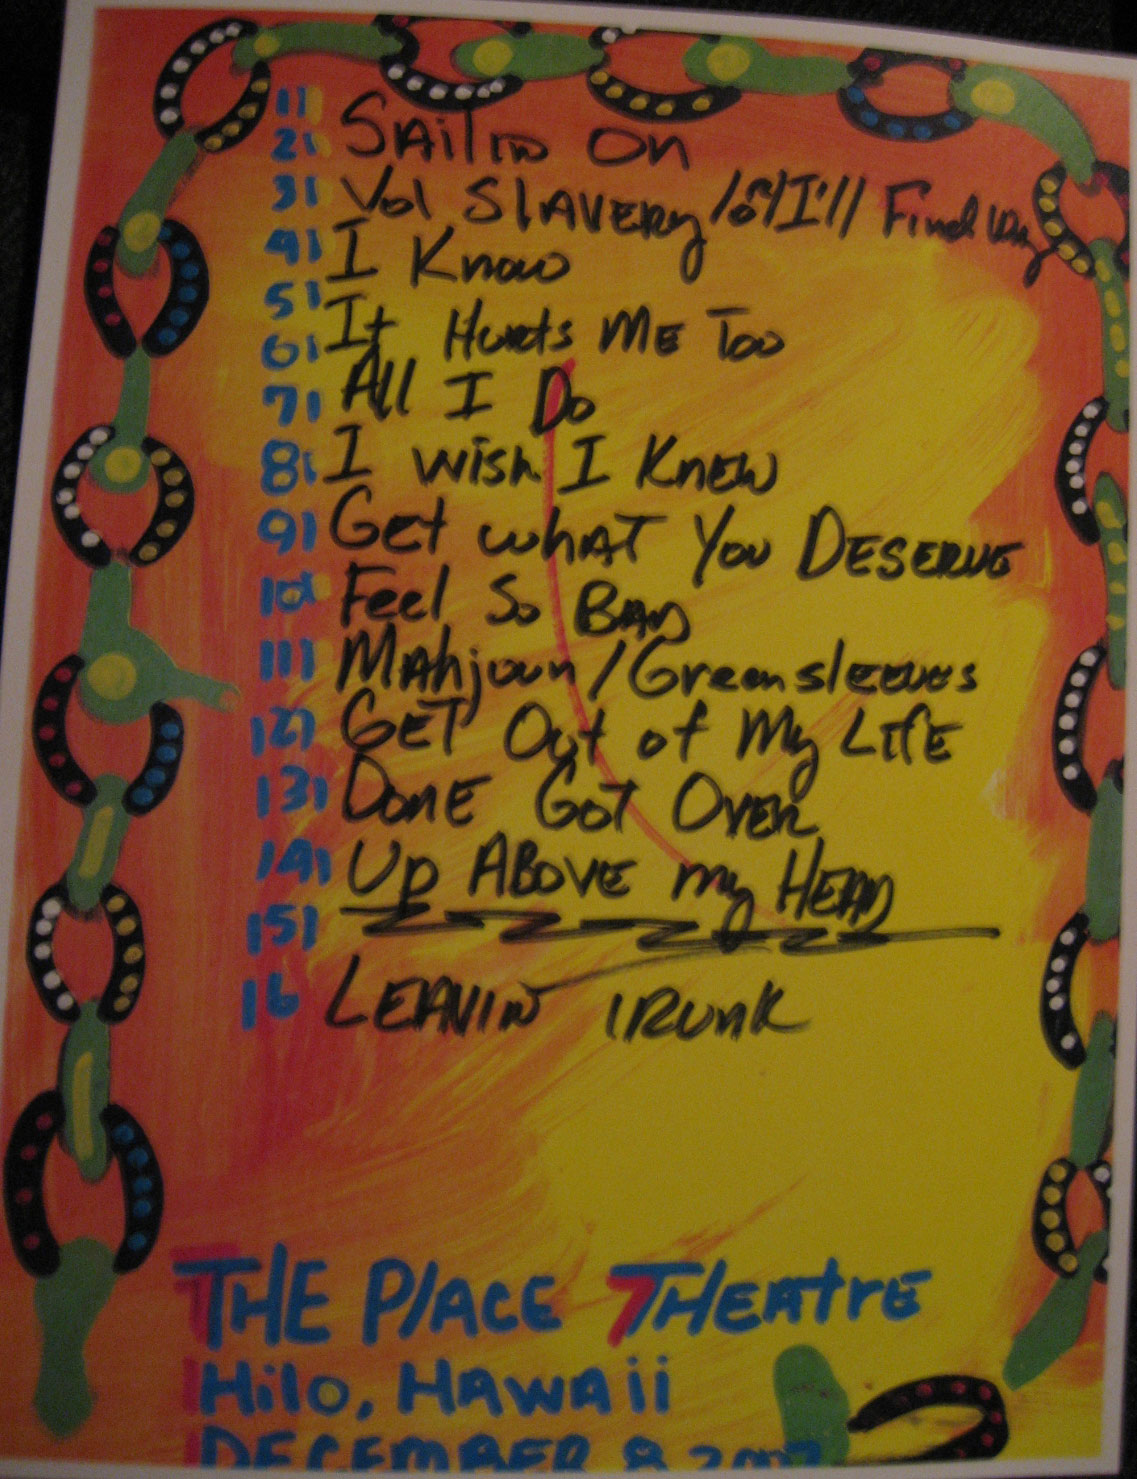 1) Sailin On
2)
3) Vol Slavery / I'll Find Way
4) I Know
5)
6) It Hurts Me Too
7) All I Do
8) I wish I Knew
9) Get what You Deserve
10) Feel So Bad
11) Mahjoun / Greensleeves
12) Get Out of My Life
13) Done Got Over
14) Up Above my Head
15)
16 Leavin Trunk
THE PLACE THEATRE
Hilo, HAWAii
DECEMBER 8 2007